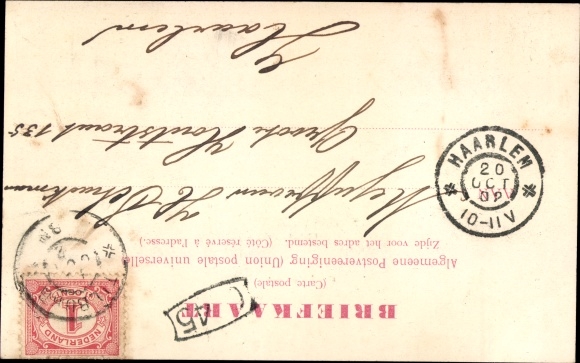 BRIEFKAART
(Carte postale)
Algemeene Postvereeniging (Union postale universelle)
Zijde voor het adres bestemd. (Côté réservé à l'adresse.)
Mejuffrouw
Groote Houtstraat 135
Haarlem
NEDERLAND
1
CENT
45
HAARLEM
20
OCT
10-11V